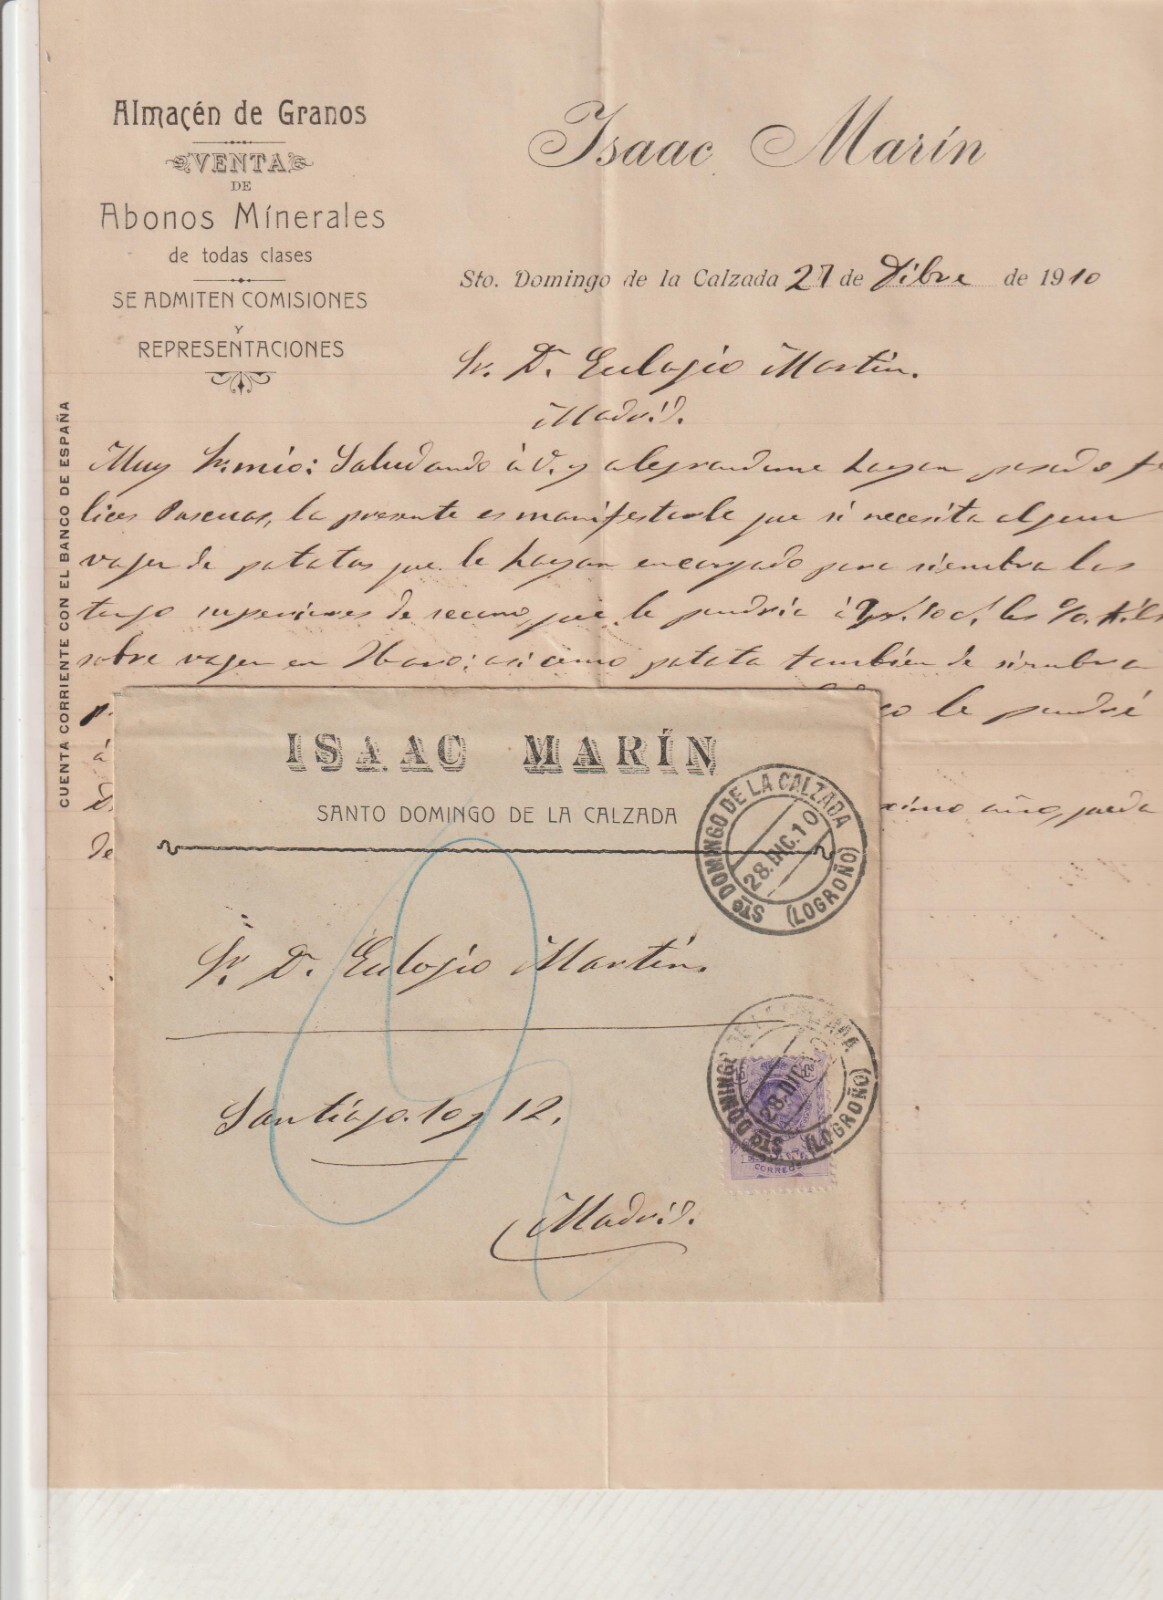 Almacén de Granos
VENTA
DE
Abonos Minerales
de todas clases
SE ADMITEN COMISIONES
Y
REPRESENTACIONES
CUENTA CORRIENTE CON EL BANCO DE ESPAÑA
Isaac Marín
Sto. Domingo de la Calzada 27 de Dibre de 1910
Sr. D. Eulogio Martin.
Madrid.
Muy Sr. mio: Saludando á V. y alegrandome hayan pasado fe
lices Pascuas, la presente es manifestarle que si necesita algun
vagon de patatas que le hayan encargado para siembra las
tengo superiores de secano, que le pondria á los % k.
sobre vagon en Haro: asi como patata también de siembra
le pondré
á
ximo año, pueda
de
ISAAC MARÍN
SANTO DOMINGO DE LA CALZADA
STO DOMINGO DE LA CALZADA
28.DIC.10
(LOGROÑO)
Sr. D. Eulogio Martin.
Santiago. 10 y 12.
Madrid.
DOMINGO DE LA CALZADA
28.DIC.10
STO
(LOGROÑO)
CORREOS